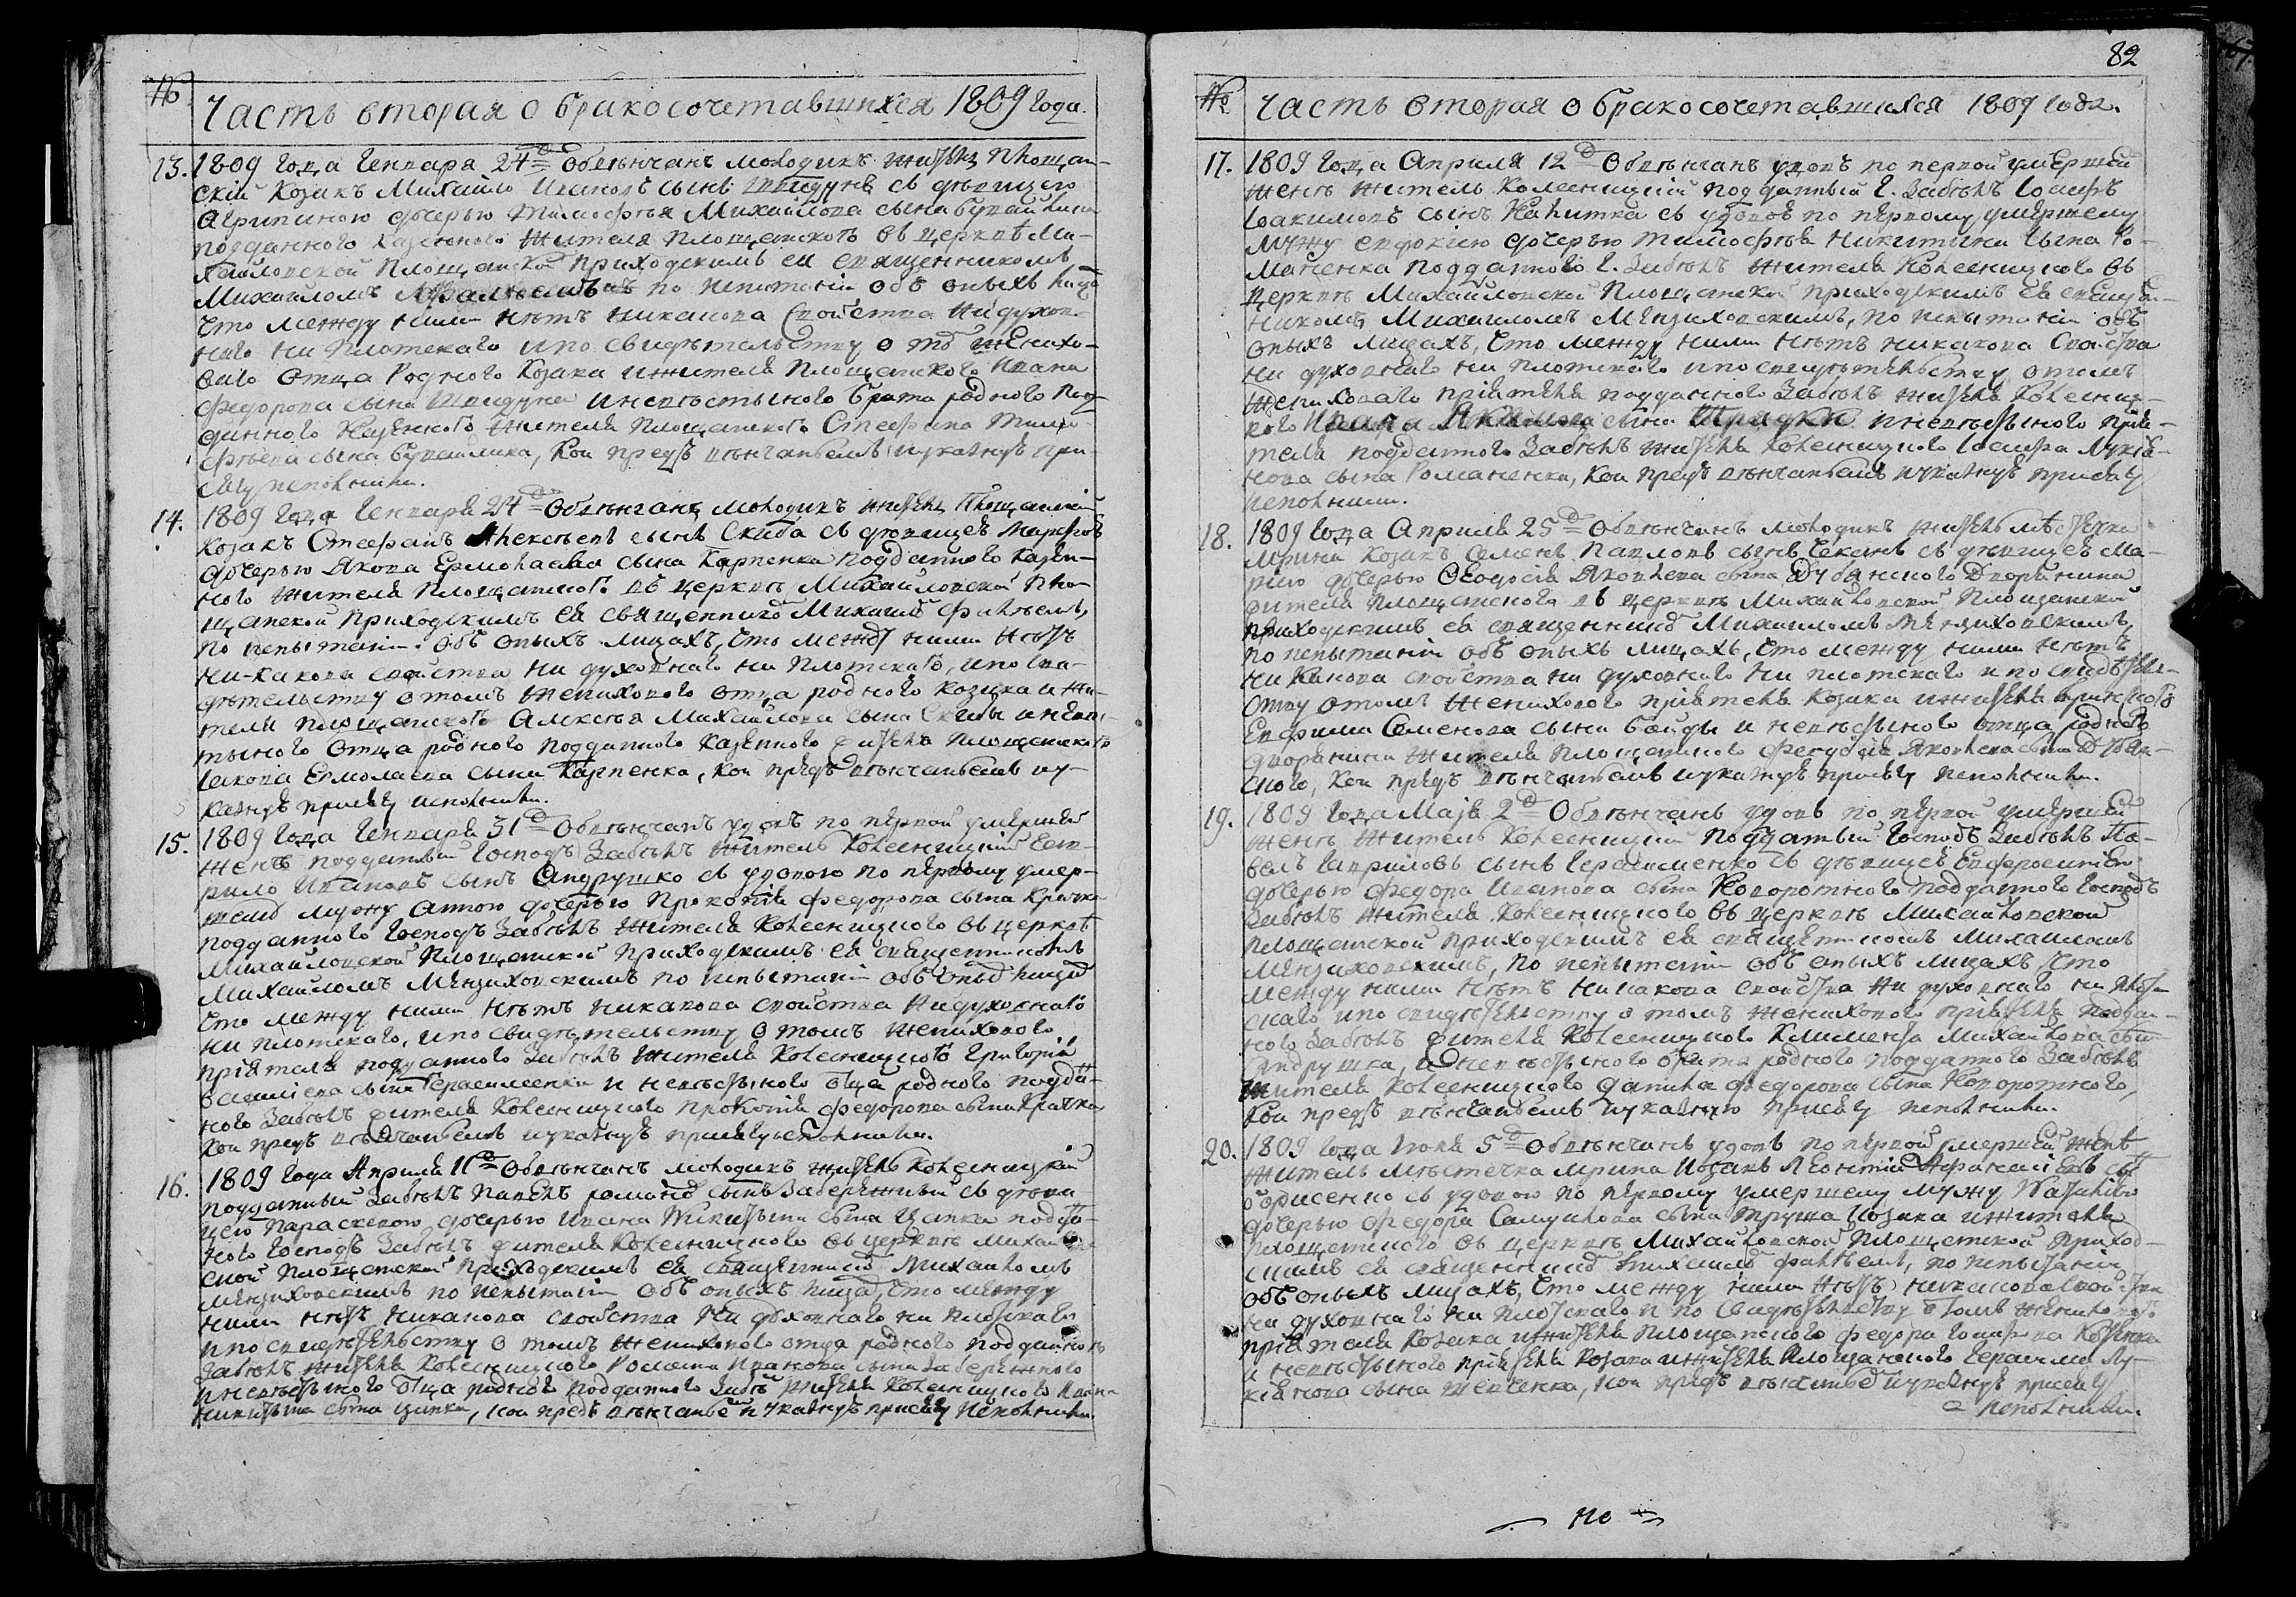 № Часть вторая о бракосочетавшихся 1809 года.
13. 1809 года Генваря 24д Обвѣнчанъ молодикъ житель Площан-
скій козакъ Михайло Ивановъ сынъ съ дѣвицею
Агрипиною дочерью Тимофѣя Михайлова сына
подданного казенного жителя площанского въ церквѣ Ми-
хайловской Площанской приходскимъ ея священникомъ
Михаиломъ по испытаніи объ оныхъ
что между ними нѣтъ никакова свойства ни духов-
наго ни плотскаго и по свидѣтельству о томъ женихо-
вого отца родного козака и жителя площанского Ивана
Федорова сына и невѣстыного брата родного под-
данного казенного жителя площанского Стефана Тимо-
фѣева сына, кои предъ вѣнчаніемъ и указнуъ при-
сягу исполнили.
14. 1809 года Генваря 24д Обвѣнчанъ молодикъ житель Площанскій
козакъ Стефанъ Алексѣевъ сынъ Скиба съ дѣвицею Марфою
дочерью Якова Ермолаева сына Карпенка подданного казен-
ного жителя площанского въ церквѣ Михайловской Пло-
щанской приходскимъ ея священникомъ Михаиломъ
по испытаніи объ оныхъ лицахъ, что между ними нѣтъ
ни-какова свойства ни духовнаго ни плотскаго, и по сви-
дѣтельству о томъ женихового отца родного козака и жи-
теля площанского Алексѣя Михайлова сына Скибы и невѣс-
тыного отца родного подданного казенного жителя площанского
Іакова Ермолаева сына Карпенка, кои предъ вѣнчаніемъ и у-
казнуъ присягу исполнили.
15. 1809 года Генваря 31д Обвѣнчанъ удовъ по первой умершей
женѣ подданный господъ Забѣлъ житель Колесницкій
Ивановъ сынъ Андрушко съ удовою по первому умер-
шему мужу Анною дочерью Прокопія Федорова сына
подданного господъ Забѣлъ жителя Колесницкого въ церквѣ
Михайловской Площанской приходскимъ ея священникомъ
Михаиломъ Мензиховскимъ по испытаніи объ
что между ними нѣтъ никакова свойства ни духовнаго
ни плотскаго, и по свидѣтельству о томъ женихового
пріятеля подданного Забѣлъ жителя Колесницкого Григорія
Василіева сына Герасименка и невѣстыного отца родного подда-
ного Забѣлъ жителя Колесницкого Прокопія Федорова сына
кои предъ вѣнчаніемъ и указнуъ присягу исполнили.
16. 1809 года Априля 11д Обвѣнчанъ молодикъ житель Колесницкій
подданный Забѣлъ Павелъ Романовъ сынъ Забережный съ дѣви-
цею Параскевою дочерью Ивана Никитина сына Цапка подда-
ного господъ Забѣлъ жителя Колесницкого въ церквѣ Михайлов-
ской Площанской приходскимъ ея священникомъ Михаиломъ
Мензиховскимъ по испытаніи объ оныхъ лицахъ, что между
ними нѣтъ никакова свойства ни духовнаго ни плотскаго
и по свидѣтельству о томъ женихового отца родного подданного
Забѣлъ жителя Колесницкого Романа Иванова сына Забережного
и невѣстыного отца родного подданного Забѣлъ жителя Колесницкого Ивана
Никитина сына Цапки, кои предъ вѣнчаніемъ и указнуъ присягу исполнили.
82
№ Часть вторая о бракосочетавшихся 1809 года.
17. 1809 года Априля 12д Обвѣнчанъ удовъ по первой умершей
женѣ житель Колесницкій подданный г. Забѣлъ Іосифъ
Іоакимовъ сынъ Калитка съ удовою по первому умершему
мужу Евфокіею дочерью Тимофѣя Никитина сына Ро-
маненка подданного г. Забѣлъ жителя Колесницкого въ
церквѣ Михайловской Площанской приходскимъ ея священ-
никомъ Михаиломъ Мензиховскимъ, по испытаніи объ
оныхъ лицахъ, что между ними нѣтъ никакова свойства
ни духовнаго ни плотского и по свидѣтельству о томъ
женихового пріятеля подданного Забѣлъ жителя Колесниц-
кого Ивана сына и невѣстыного прія-
теля подданного Забѣлъ жителя Колесницкого Іосифа Лукія-
нова сына Романенка, кои предъ вѣнчаніемъ и указнуъ присягу
исполнили.
18. 1809 года Априля 25д Обвѣнчанъ молодикъ житель мѣстечка
Мрина козакъ Семенъ Павловъ сынъ съ дѣвицею Ма-
ріею дочерью Ѳеодосія Яковлева сына Дубянского дворянина
жителя площанского въ церквѣ Михайловской Площанской
приходскимъ ея священникомъ Михаиломъ Мензиховскимъ,
по испытаніи объ оныхъ лицахъ, что между ними нѣтъ
никакова свойства ни духовнаго ни плотскаго и по свидѣтель-
ству о томъ женихового пріятеля козака и жителя мринского
Евфима Семенова сына Байды и невѣстыного отца родного
дворянина жителя площанского Феодосія Яковлева сына Дубян-
ского, кои предъ вѣнчаніемъ и указнуъ присягу исполнили.
19. 1809 года Маія 2д Обвѣнчанъ удовъ по первой умершей
женѣ житель Колесницкій подданый господъ Забѣлъ Па-
велъ Гавриловъ сынъ Герасименко съ дѣвицею Евфросиніею
дочерью Федора Иванова сына Коворотного подданого господъ
Забѣлъ жителя Колесницкого въ церквѣ Михайловской
площанской приходскимъ ея священникомъ Михаиломъ
Мензиховскимъ, по испытаніи объ оныхъ лицахъ, что
между ними нѣтъ никакова свойства ни духовнаго ни плот-
скаго и по свидѣтельству о томъ женихового пріятеля поддан-
ного Забѣлъ жителя Колесницкого Климента Михайлова сына
Андрушка, и невѣстыного брата родного подданого Забѣлъ
жителя Колесницкого Данила Федорова сына Коворотного,
кои предъ вѣнчаніемъ и указную присягу исполнили.
20. 1809 года Іюня 5д Обвѣнчанъ удовъ по первой умершей женѣ
житель мѣстечка Мрина козакъ Леонтій Афанасіевъ сынъ
Борисенко съ удовою по первому умершему мужу
дочерью Федора Самуилова сына Труша козака и жителя
площанского въ церквѣ Михайловской Площанской приход-
скимъ ея священникомъ Михаиломъ, по испытаніи
объ оныхъ лицахъ, что между ними нѣтъ никакова свойства
ни духовнаго ни плотскаго и по свидѣтельству о томъ женихового
пріятеля козака и жителя площанского Федора
и невѣстыного пріятеля козака и жителя Площанского Герасима Лу-
кіянова сына Шевченка, кои предъ вѣнчаніемъ и указнуъ присягу
исполнили.